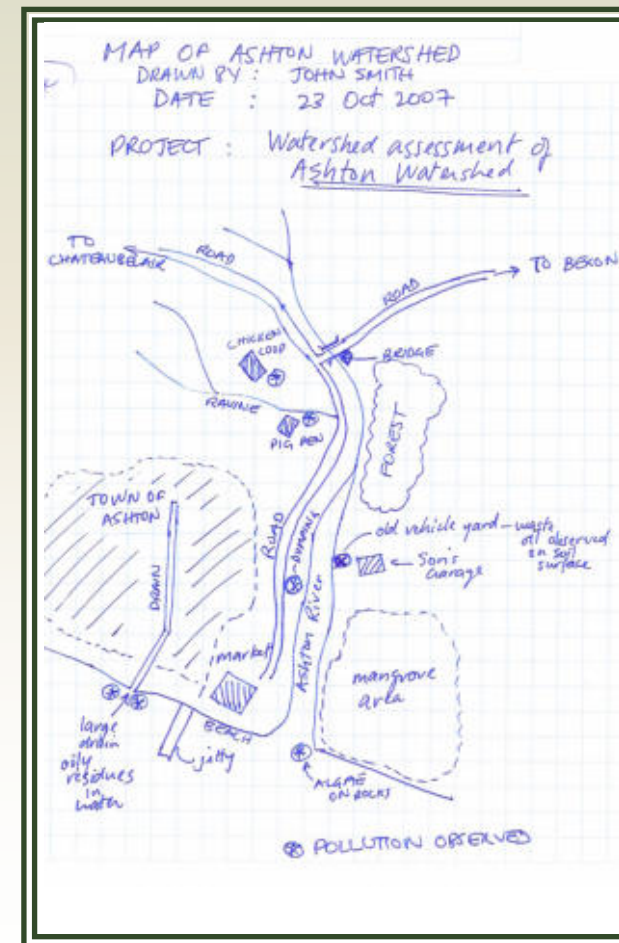 MAP OF ASHTON WATERSHED
DRAWN BY : JOHN SMITH
DATE : 23 Oct 2007
PROJECT : Watershed assessment of
Ashton Watershed
TO
CHATEAUBELAIR
ROAD
ROAD
TO BEXON
CHICKEN
COOP
BRIDGE
RAVINE
PIG PEN
FOREST
TOWN OF
ASHTON
DRAIN
ROAD
DUMPING
Ashton River
old vehicle yard - waste
oil observed
on soil
surface
Son's
Garage
market
mangrove
area
BEACH
jetty
large
drain
oily
residues
in
water
ALGAE
ON ROCKS
POLLUTION OBSERVED